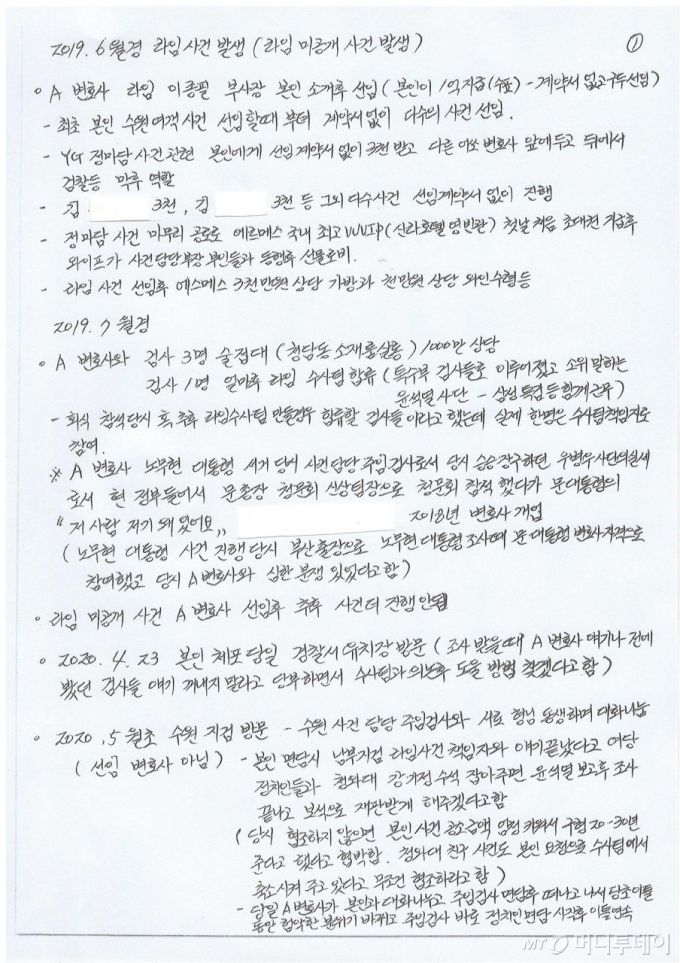 2019. 6월경 라임사건 발생 (라임 미공개 사건 발생)
①
○ A 변호사 라임 이종필 부사장 본인 소개후 선임 (본인이 1억지급(수표) - 계약서 없고 구두선임)
- 최초 본인 수원여객 사건 선임할때 부터 계약서없이 다수의 사건 선임.
- YG 정마담 사건관련 본인에게 선임 계약서 없이 3천 받고 다른 여쏘 변호사 앞에두고 뒤에서
검찰등 막후 역할
- 김 3천, 김 3천 등 그외 다수사건 선임계약서 없이 진행
- 정마담 사건 마무리 공로로 에르메스 국내 최고 VVVIP(신라호텔 영빈관) 첫날 처음 초대권 지급후
와이프가 사건담당부장 부인들과 동행후 선물로비.
- 라임 사건 선임후 에스메스 3천만원 상당 가방과 천만원 상당 와인수령등
2019. 7월경
○ A 변호사와 검사 3명 술접대 (청담동 소재룸살롱) 1000만 상당
검사 1명 얼마후 라임 수사팀 합류 (특수부 검사들로 이루어졌고 소위 말하는
윤석열 사단 - 삼성 특검 등 함께근무)
- 회식 참석당시 추후 라임수사팀 만들경우 합류할 검사들 이라고 했는데 실제 한명은 수사팀책임자로
참여.
※ A 변호사 노무현 대통령 서거 당시 사건담당 주임검사로서 당시 승승장구하던 우병우사단의실세
로서 현 정부들어서 문총장 청문회 신상팀장으로 청문회 참석 했다가 문대통령의
"저 사람 저기 왜 있어요,, 2018년 변호사 개업
(노무현 대통령 사건 진행 당시 부산출장으로 노무현대통령조사때 문 대통령 변호사자격으로
참여했고 당시 A변호사와 심한 분쟁 있었다고 함)
○ 라임 미공개 사건 A 변호사 선임후 추후 사건더 진행 안됨
○ 2020. 4. 23 본인 체포 당일 경찰서 유치장 방문 (조사 받을때 A 변호사 얘기나 전에
봤던 검사들 얘기 꺼내지 말라고 당부하면서 수사팀과 의논후 도울 방법 찾겠다고 함)
○ 2020. 5월초 수원 지검 방문 - 수원 사건 담당 주임검사와 서로 형님 동생하며 대화나눔
(선임 변호사 아님) - 본인 면담시 남부지검 라임사건 책임자와 얘기끝났다고 여당
정치인들과 청와대 강기정 수석 잡아주면 윤석열 보고후 조사
끝나고 보석으로 재판받게 해주겠다고함
(당시 협조하지 않으면 본인 사건 공소금액 엄청 키워서 구형 20-30년
준다고 했다고 협박함. 청와대 친구 사건도 본인 요청으로 수사팀에서
축소시켜 주고 있다고 무조건 협조하라고 함)
- 당일 A변호사가 본인과 대화나누고 주임검사 면담후 떠나고 나서 당초이틀
동안 험악한 분위기 바뀌고 주임검사 바로 정치인면담 시작후 이틀연속
MT 머니투데이